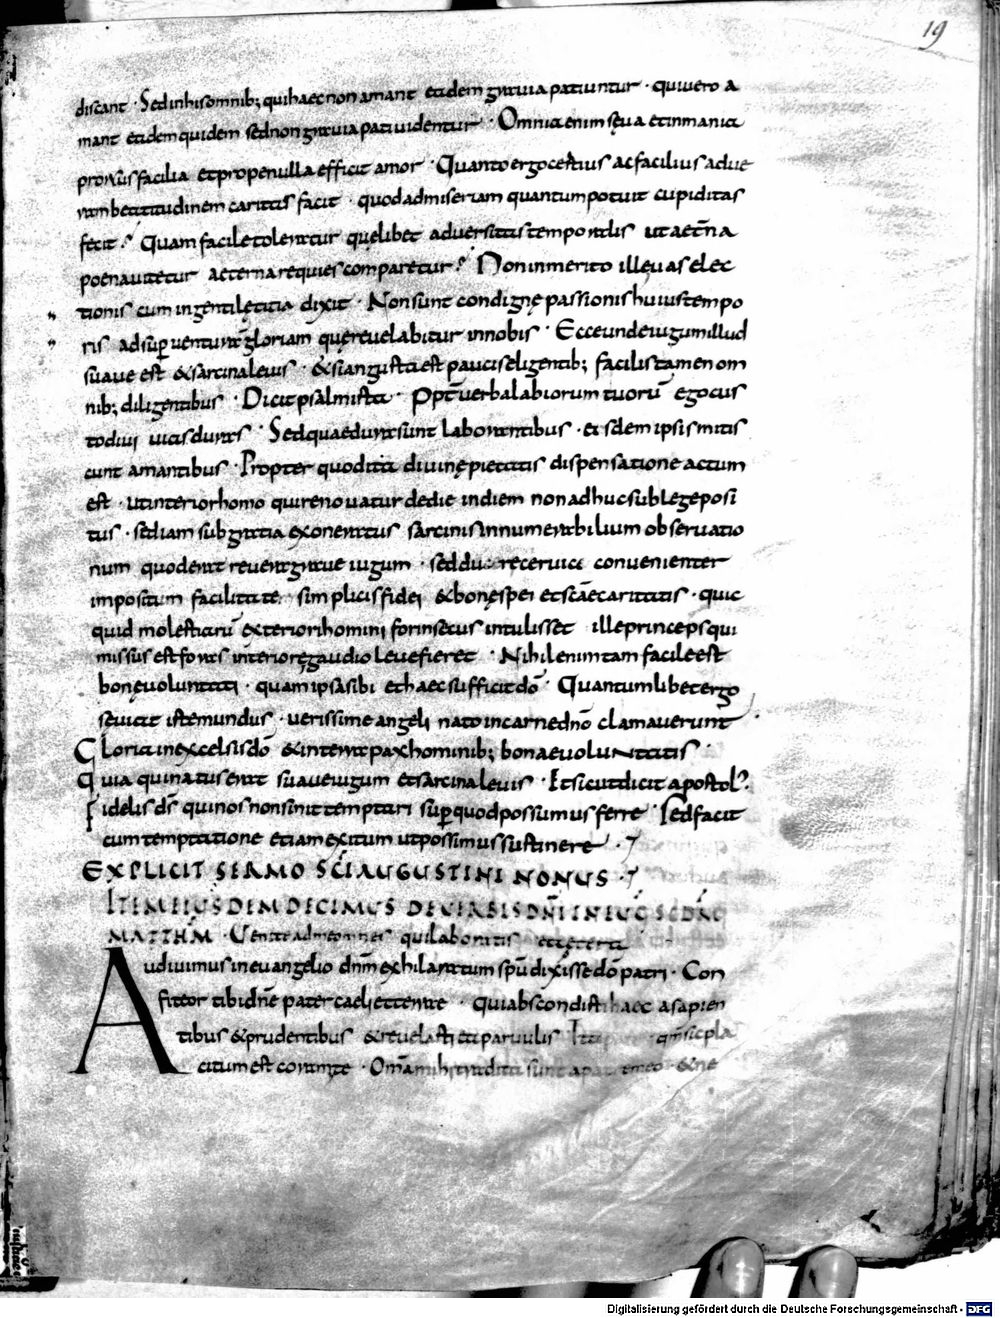 19
discant · Sed in his omnib; qui haec non amant eadem grauia patiuntur · qui uero a
mant eadem quidem sed non grauia pati uidentur · Omnia enim sęua et inmania
prorsus facilia et prope nulla efficit amor · Quanto ergo certius ac facilius ad ue
ram beatitudinem caritas facit · quod ad miseriam quantum potuit cupiditas
fecit? Quam facile toleratur quęlibet aduersitas temporalis ut aet̅na
poena uitetur aeterna requies comparetur? Non inmerito ille uas elec
tionis cum ingenti lętitia dixit · Non sunt condignę passionis huius tempo
ris ad sup̱uentura̅ gloriam quę reuelabitur in nobis · Ecce unde iugum illud
suaue est & sarcina leuis · & si angusta est paucis eligentib; facilis tamen om
nib; diligentibus · Dicit psalmista · Ppt̅ uerba labiorum tuoru̅ ego cus
todiui uias duras · Sed quae dura sunt laborantibus · eisdem ipsis mitis
cunt amantibus · Propter quod ita diuinę pietatis dispensatione actum
est · ut interior homo qui renouatur de die in diem non adhuc sub lege posi
tus · sed iam sub gratia exoneratus sarcinis innumerabilium obseruatio
num quod erat reuera graue iugum · sed duræ ceruici conuenienter
impositum facilitate simplicis fidei & bonę spei et sc̅ae caritatis · quic
quid molestiaru̅ exteriori homini forinsecus intulisset ille princeps qui
missus est foras interiore gaudio leue fieret · Nihil enim tam facile est
bonę uoluntati · quam ipsa sibi et haec sufficit do̅ · Quantumlibet ergo
seuiat iste mundus · uerissime angeli nato in carne dn̅o clamauerunt
Gloria in excelsis do̅ & in terra pax hominib; bonae uoluntatis ·
Quia qui natus erat suaue iugum et sarcina leuis · Et sicut dicit apostol ·
Fidelis ds̅ qui nos non sinit temptari sup̱ quod possumus ferre · Sed facit
cum temptatione etiam exitum ut possimus sustinere ·
EXPLICIT SERMO SC̅I AUGUSTINI NONUS ·
ITEM EIUSDEM DECIMUS DE UERBIS DN̅I IN EUG̅ SCDM̅
MATTHM̅ · Uenite ad me omnes qui laboratis et cetera
Audiuimus in euangelio dn̅m exhilaratum spu̅ dixisse do̅ patri · Con
fiteor tibi dn̅e pater caeli et terrae · quia abscondisti haec a sapien
tibus & prudentibus & reuelasti ea paruulis Ita pater qm̅ sic pla
citum est coram te · Om̅a mihi tradita sunt a patre meo · & ne
Digitalisierung gefördert durch die Deutsche Forschungsgemeinschaft · DFG